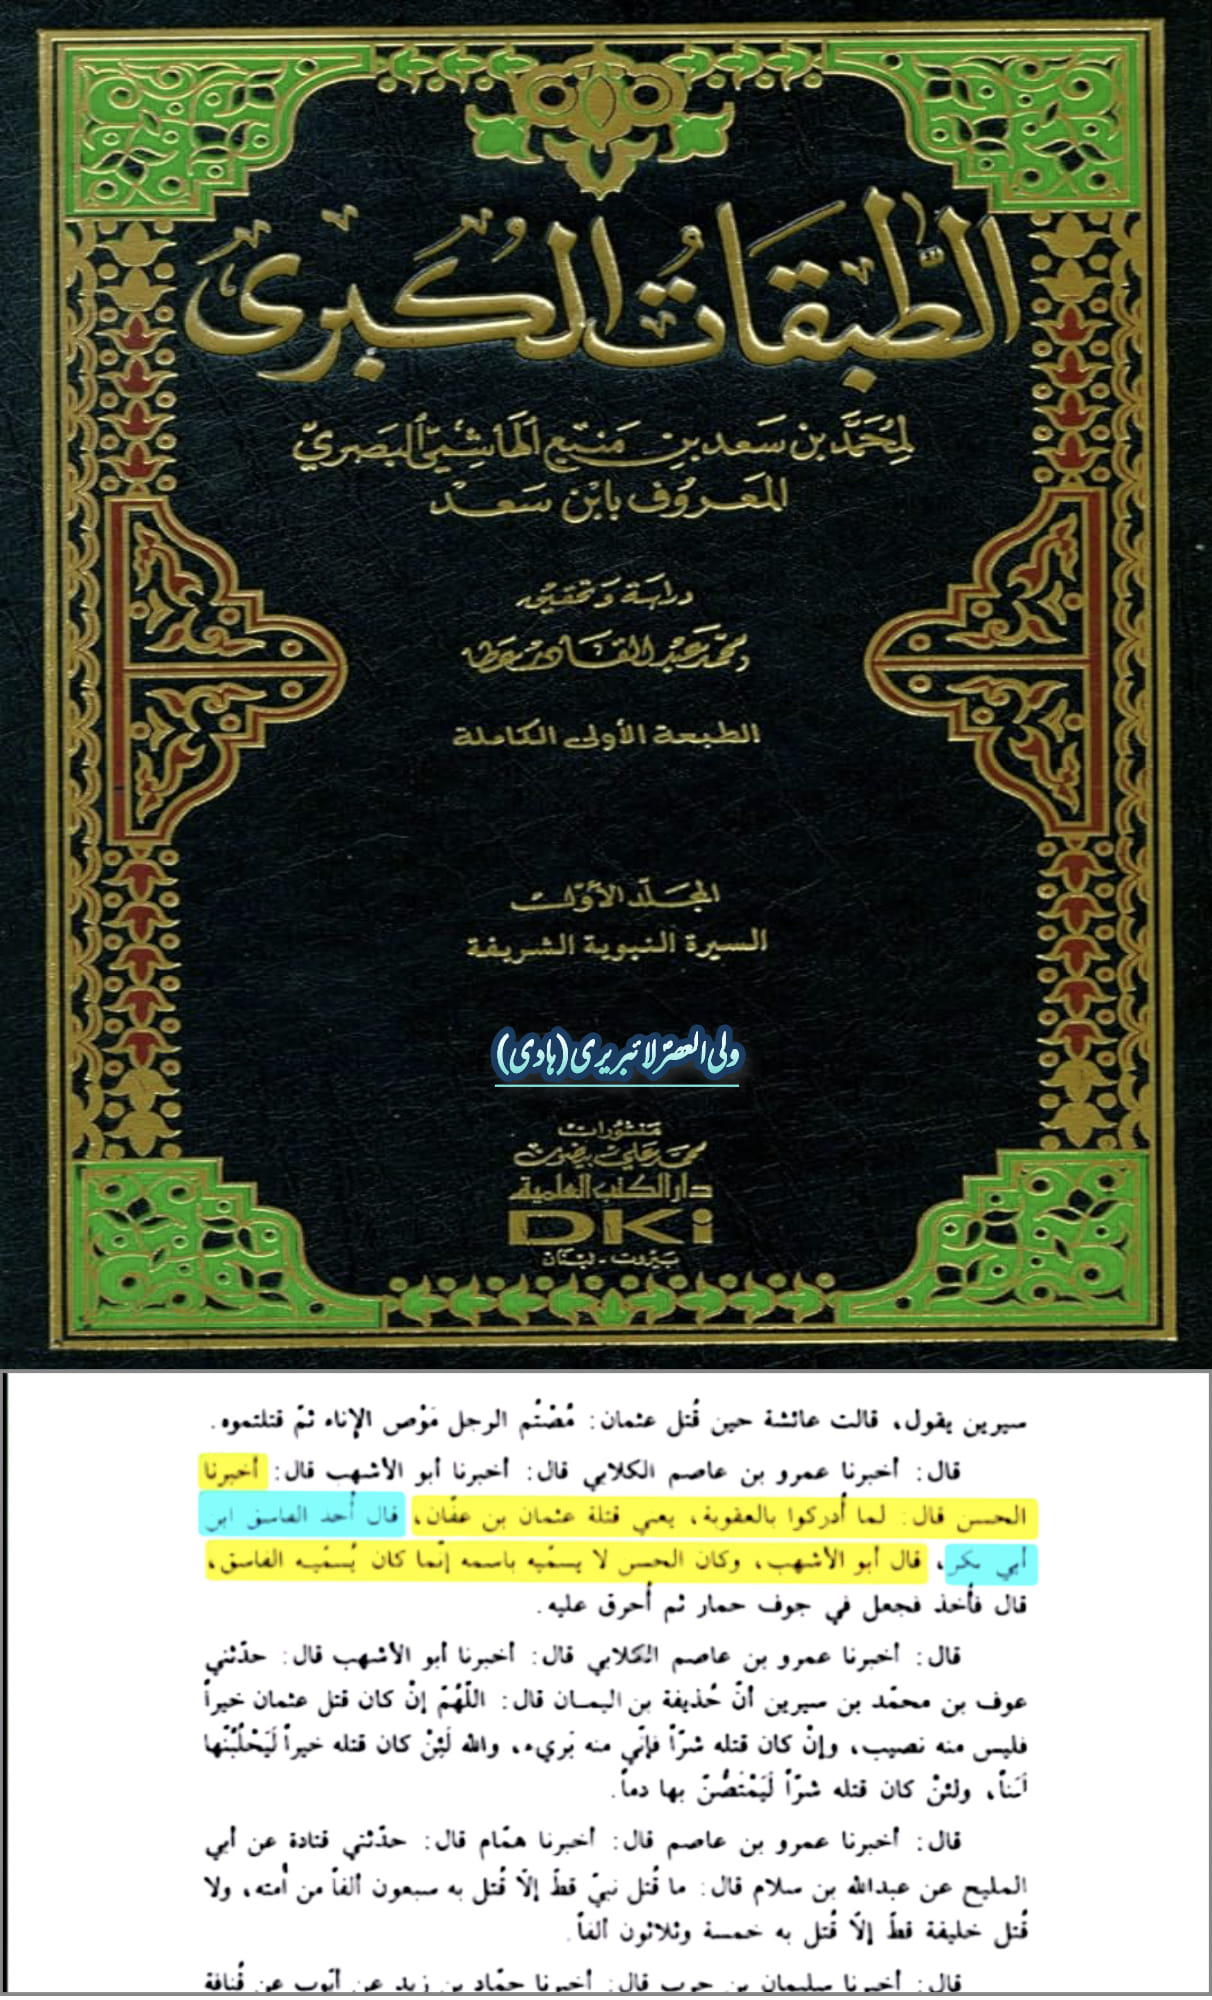 الطبقات الكبرى
لمحمد بن سعد بن منيع الهاشمي البصري
المعروف بابن سعد
دراسة وتحقيق
محمد عبد القادر عطا
الطبعة الأولى الكاملة
المجلد الأول
السيرة النبوية الشريفة
ولی العصر لائبریری (ہادی)
منشورات
محمد علي بيضون
دار الكتب العلمية
DKi
بيروت - لبنان
سيرين يقول، قالت عائشة حين قُتل عثمان: مُصْتُم الرجل مَوْص الإناء ثمّ قتلتموه.
قال: أخبرنا عمرو بن عاصم الكلابي قال: أخبرنا أبو الأشهب قال: أخبرنا
الحسن قال: لما أُدركوا بالعقوبة، يعني قتلة عثمان بن عفّان، قال أُخذ الفاسق ابن
أبي بكر، قال أبو الأشهب، وكان الحسن لا يسمّيه باسمه إنّما كان يُسمّيه الفاسق،
قال فأُخذ فجعل في جوف حمار ثم أُحرق عليه.
قال: أخبرنا عمرو بن عاصم الكلابي قال: أخبرنا أبو الأشهب قال: حدّثني
عوف بن محمّد بن سيرين أنّ حُذيفة بن اليمان قال: اللّهُمّ إنْ كان قتل عثمان خيراً
فليس منه نصيب، وإنْ كان قتله شرّاً فإنّي منه بَريء، والله لَئِنْ كان قتله خيراً لَيَحْلُبُنّها
لَبَناً، ولئنْ كان قتله شرّاً لَيَمْتَصُّنّ بها دماً.
قال: أخبرنا عمرو بن عاصم قال: أخبرنا همّام قال: حدّثني قتادة عن أبي
المليح عن عبدالله بن سلام قال: ما قُتل نبيّ قطّ إلّا قُتل به سبعون ألفاً من أُمته، ولا
قُتل خليفة قطّ إلّا قُتل به خمسة وثلاثون ألفاً.
قال: أخبرنا سليمان بن حرب قال: أخبرنا حمّاد بن زيد عن أيّوب عن